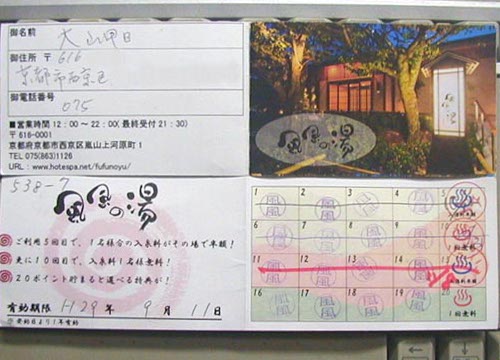 御名前
大山甲日
御住所 〒616
京都市西京区
御電話番号
075
■営業時間 12:00~22:00(最終受付21:30)
〒616-0001
京都府京都市西京区嵐山上河原町1
TEL 075(863)1126
URL : www.hotespa.net/fufunoyu/
風風の湯
538-7
風風の湯
ご利用5回目で、1名様分の入泉料がその場で半額!
更に10回目で、入泉料1名様無料!
20ポイント貯まると選べる特典が!
有効期限 H29年 9月 11日
1 2 3 4 5
風風 風風 風風 風風
6 7 8 9
風風 風風 風風 風風
1回無料
11 12 13 14
風風 風風 風風 風風
16 17 18 19 20
風風 風風 風風 風風
1回無料